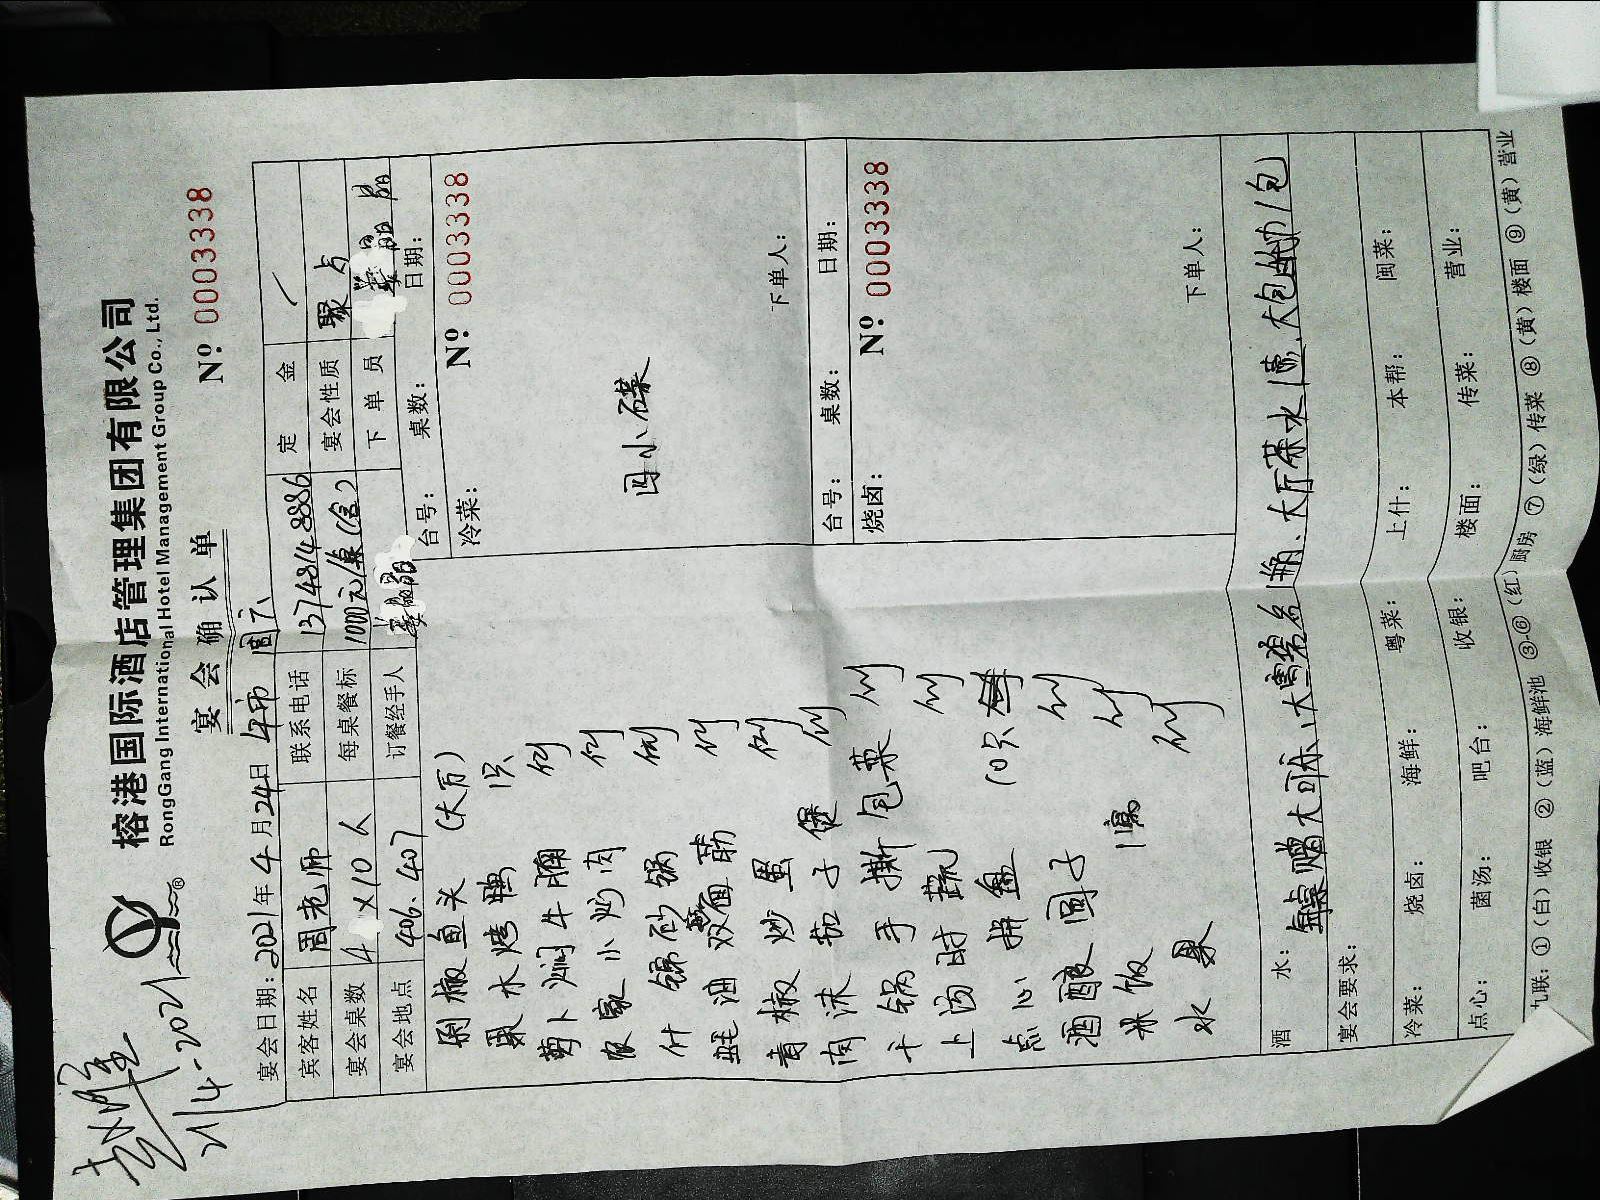 榕港国际酒店管理集团有限公司
RongGang International Hotel Management Group Co., Ltd.
宴会确认单
Nº 0003338
21/4-2021
宴会日期：2021年4月24日 午市 周六 定金 /
宾客姓名 周老师 联系电话 13748148886 宴会性质 聚点
宴会桌数 4×10人 每桌餐标 1000元/桌(含) 下单员
宴会地点 406、407 订餐经手人
剁椒鱼头 (大份) 1只
果水烤鸭 例
萝卜焖牛腩 例
农家小炒肉 例
什锦砂锅 例
蚝油双面筋 例
青椒炒蛋 例
肉沫茄子煲 例
干锅手撕包菜 例
上汤时蔬
点心拼盘 10只
酒酿圆子 例
米饭 1桶 例
水果 例
台号： 桌数： 日期：
冷菜： Nº 0003338
四小碟
下单人：
台号： 桌数： 日期：
烧卤： Nº 0003338
下单人：
酒水： 每桌赠大可乐、大雪碧各1瓶、大厅茶水1壶、大包1包
宴会要求：
冷菜： 烧卤： 海鲜： 粤菜： 上什： 本帮： 闽菜：
点心： 菌汤： 吧台： 收银： 楼面： 传菜： 营业：
九联：①（白）收银 ②（蓝）海鲜池 ③-⑥（红）厨房 ⑦（绿）传菜 ⑧（黄）楼面 ⑨（黄）营业